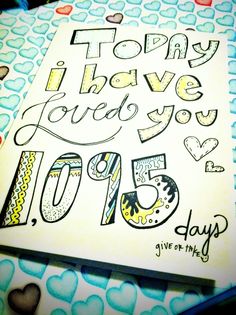 Today
i have
Loved you
1,095
days
give or take